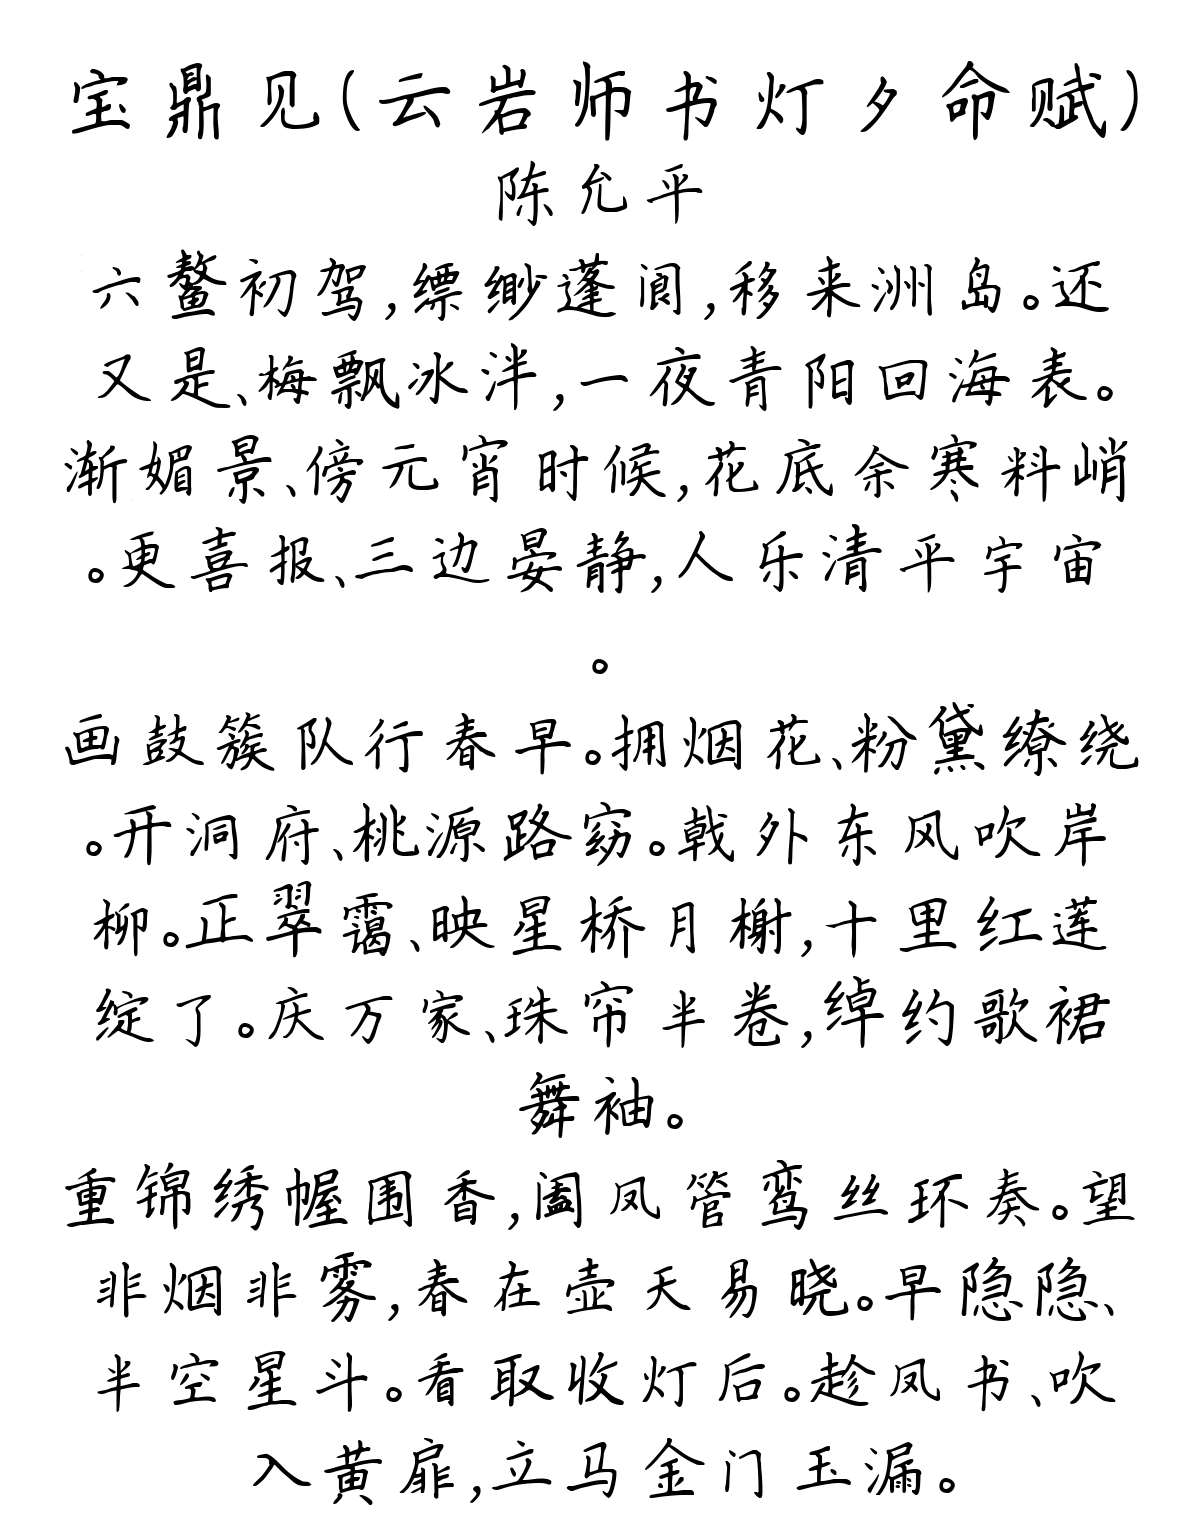 宝鼎见(云岩师书灯夕命赋)
陈允平
六鳌初驾,缥缈蓬阆,移来洲岛。还
又是、梅飘冰泮,一夜青阳回海表。
渐媚景、傍元宵时候,花底余寒料峭
。更喜报、三边晏静,人乐清平宇宙
。
画鼓簇队行春早。拥烟花、粉黛缭绕
。开洞府、桃源路窈。戟外东风吹岸
柳。正翠霭、映星桥月榭,十里红莲
绽了。庆万家、珠帘半卷,绰约歌裙
舞袖。
重锦绣幄围香,阖凤管鸾丝环奏。望
非烟非雾,春在壶天易晓。早隐隐、
半空星斗。看取收灯后。趁凤书、吹
入黄扉,立马金门玉漏。